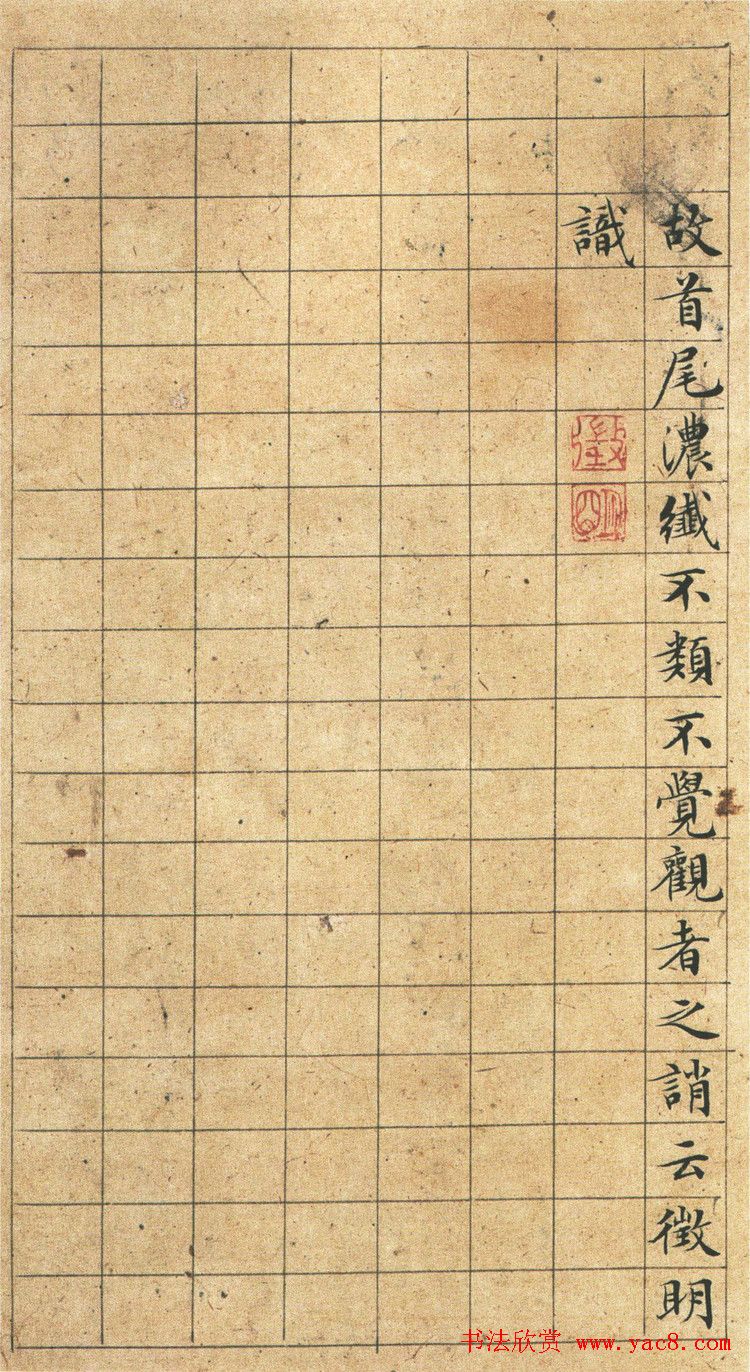 故首尾濃纖不類不覺觀者之誚云徵明
識
徵
明
书法欣赏 www.yac8.com